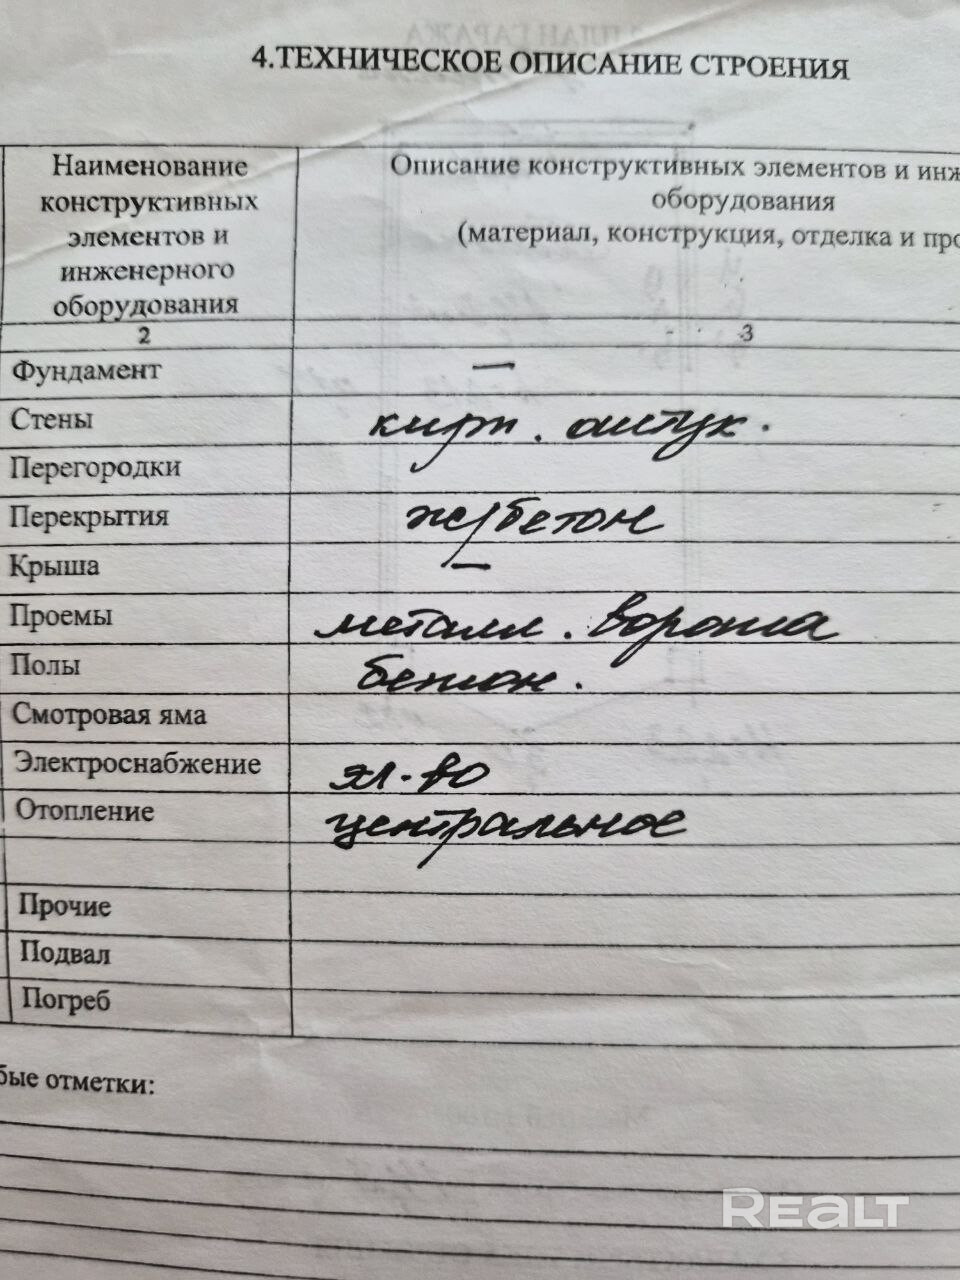 4.ТЕХНИЧЕСКОЕ ОПИСАНИЕ СТРОЕНИЯ
Наименование
конструктивных
элементов и
инженерного
оборудования
Описание конструктивных элементов и инж
оборудования
(материал, конструкция, отделка и про
2 3
Фундамент —
Стены кирп. оштук.
Перегородки
Перекрытия ж/бетон
Крыша —
Проемы металл. ворота
Полы бетон.
Смотровая яма
Электроснабжение эл-во
Отопление центральное
Прочие
Подвал
Погреб
бые отметки:
REALT